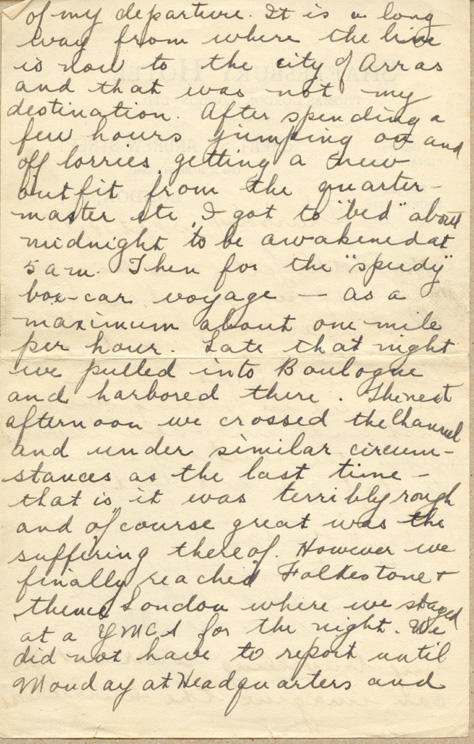 of my departure. It is a long
way from where the line
is now to the city of Arras
and that was not my
destination. After spending a
few hours jumping on and
off lorries getting a new
outfit from the quarter-
master etc, I got to "bed" about
midnight to be awakened at
5 am. Then for the "speedy"
box-car voyage — as a
maximum about one mile
per hour. Late that night
we pulled into Boulogne
and harbored there. The next
afternoon we crossed the Channel
and under similar circum-
stances as the last time -
that is it was terribly rough
and of course great was the
suffering thereof. However we
finally reached Folkestone +
thence London where we stayed
at a YMCA for the night. We
did not have to report until
Monday at Headquarters and